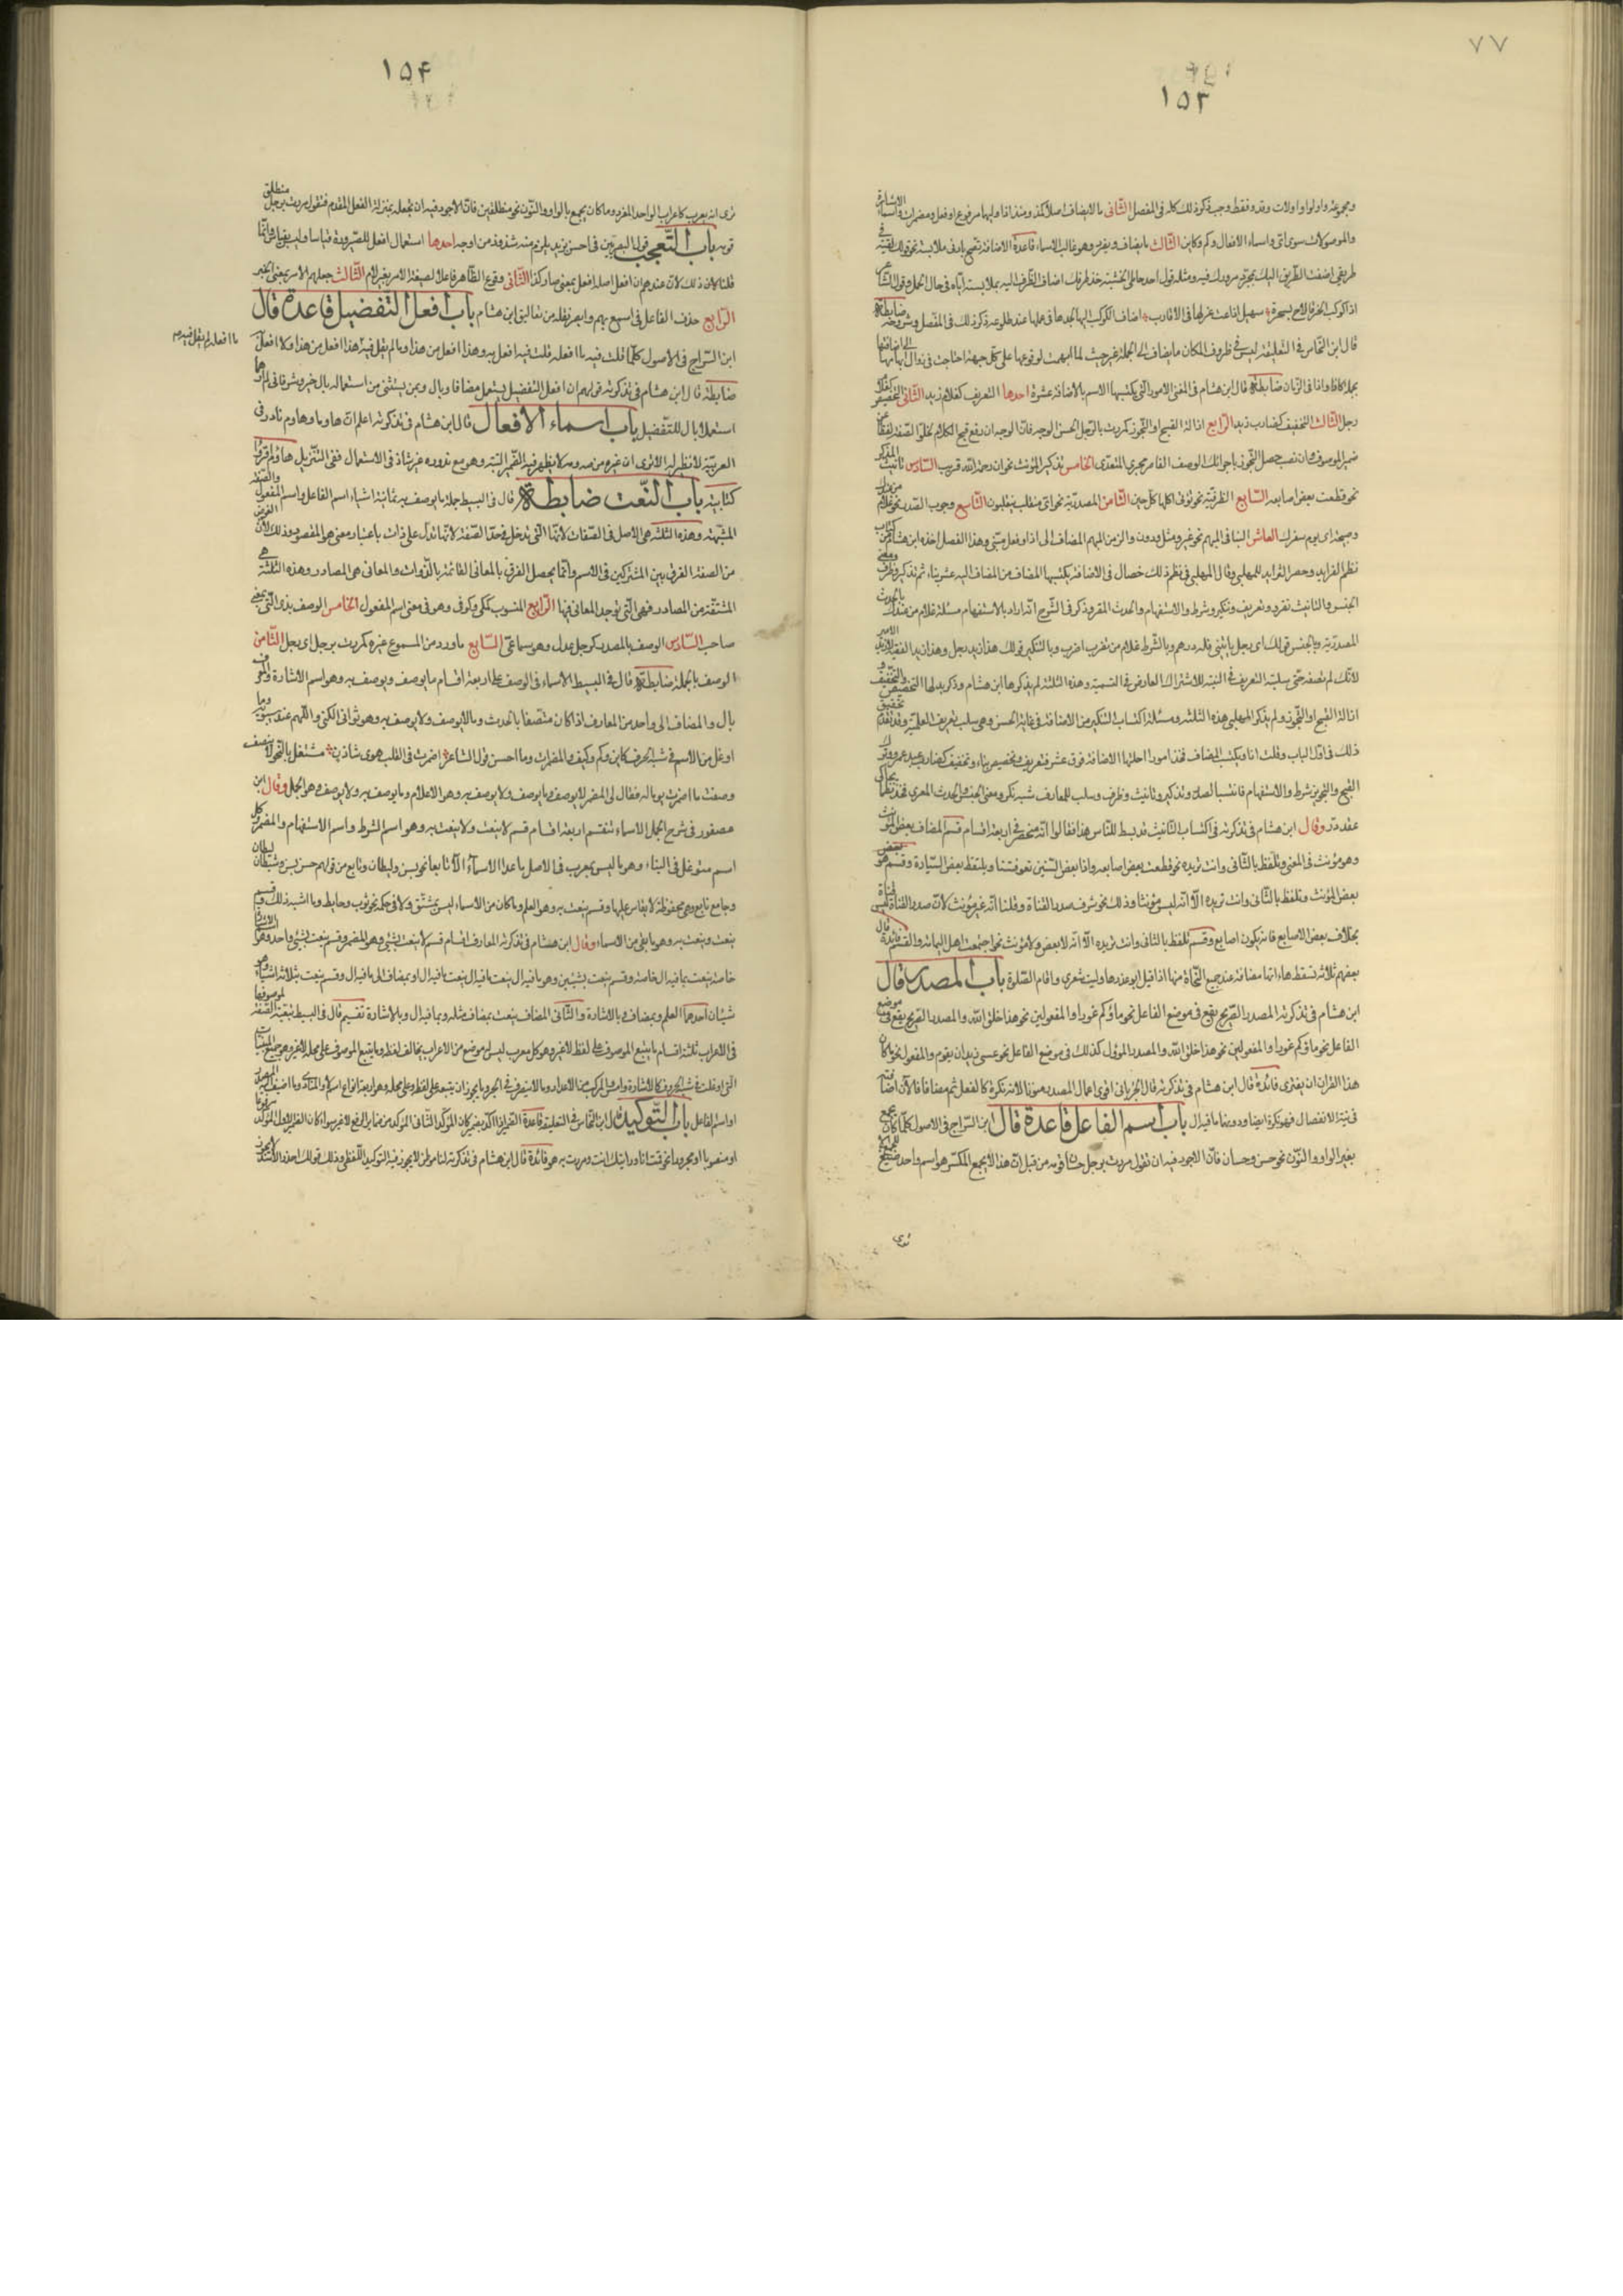 ٧٧
١٥٣
ومجموعه واولوا واولات وقد وقط وحسب ذكر ذلك كله فى المفصل الثانى ما لا يضاف اصلا كمذ ومنذ اذا وليهما مرفوع او فعل ومضمرات واسماء الاشارة
والموصولات سوى اىّ واسماء الافعال وكم وكاين الثالث ما يضاف ويفرد وهو غالب الاسماء قاعدة الاضافة تصح بادنى ملابسة نحو قولك لقيته فى
طريقى اضفت الطريق اليك بمجرد مرورك فيه ومثله قول احد حاملى الخشبة خذ طرفك اضاف الطرف اليه بملابسته اياه فى حال الحمل وقول الشاعر
اذا كوكب الخرقاء لاح بسحرة سهيل اذاعت غزلها فى القرايب اضاف الكوكب اليها لجدها فى عملها عند طلوعه ذكر ذلك فى المفصل وشروحه ضابطة
قال ابن النحاس فى التعليقة ليس فى ظروف المكان ما يضاف الى الجملة غير حيث لما ابهمت لوقوعها على كل جهة احتاجت فى زوال ابهامها الى اضافتها
بجملة كاذ واذا فى الزمان ضابطة قال ابن هشام فى المغنى الامور التى يكتسبها الاسم بالاضافة عشرة احدها التعريف كغلام زيد الثانى التخصيص كغلام
رجل الثالث التخفيف كضارب زيد الرابع ازالة القبح او التجوز كمررت بالرجل الحسن الوجه فان الوجه ان رفع قبح الكلام لخلو الصفة لفظا عن
ضمير الموصوف وان نصب حصل التجوز باجرائك الوصف القاصر مجرى المتعدى الخامس تذكير المؤنث نحو ان رحمة الله قريب السادس تانيث المذكر
نحو قطعت بعض اصابعه السابع الظرفية نحو تؤتى اكلها كل حين الثامن المصدرية نحو اى منقلب ينقلبون التاسع وجوب الصدر نحو غلام من عندك
وصبيحة اى يوم سفرك العاشر البنا فى المبهم نحو غير ومثل ودون والزمن المبهم المضاف الى اذ او فعل مبنى وهذا الفصل اخذه ابن هشام من كتاب
نظم الفرايد وحصر الشرايد للمهلبى وقال المهلبى فى نظم ذلك خصال فى الاضافة يكتسبها المضاف من المضاف اليه عشر
الجنس والتانيث تقرو وتعريف وتنكير وشرط والاستفهام والحدث المقر وذكر فى الشرح انه اراد بالاستفهام مسئلة غلام من عندك بالحدث
المصدرية وبالجنس قولك اى رجل ياتينى فله درهم وبالشرط غلام من تضرب اضرب وبالتنكير قولك هذا زيد رجل وهذا زيد الفقيه لا زيد الامير
لانك لم تضفه حتى سلبته التعريف فى النية للاشتراك العارض فى التسمية وهذه الثلثة لم يذكرها ابن هشام وذكر بدلها التخصيص والتخفيف و
ازالة القبح او التجوز ولم يذكر المهلبى هذه الثلثة ومسئلة اكتساب التنكير من الاضافة فى غاية الحسن وهى سلب تعريف العلمية وقد تقدم تحقيق
ذلك فى اول الباب وقلت انا ويكتسب المضاف فخذ امورا احلتها الاضافة فوق عشر فتعريف وتخصيص بناء وتخفيف كضارب عبد عمرو وترك
القبح والتجويز شرط والاستفهام فانتسبا لصدر وتذكير وتانيث وظرف وسلب للمعارف شبه نكر ومعنى الجنس والحدث المعرى فخذ نظما يحاكى
عقد در وقال ابن هشام فى تذكرته فى اكتساب التانيث قد بسط للناس هذا فقالوا انه منحصر فى اربعة اقسام قسم المضاف بعض المؤنث
وهو مؤنث فى المعنى وتلفظ بالثانى وانت تريده نحو قطعت بعض اصابعه واذا بعض السنين تعرقتنا وتلتقطه بعض السيارة وقسم هو بعض
بعض المؤنث وتلفظ بالثانى وانت تريده الا انه ليس مؤنثا وذلك نحو شرقت صدر القناة وقلنا انه غير مؤنث لان صدر القناة ليس قناة
بخلاف بعض الاصابع فانه يكون اصابع وقسم تلفظ بالثانى وانت تريده الا انه لا بعض ولا مؤنث نحو اجتمعت اهل اليمامة والقسم فائدة قال
بعضهم ثلاثة تسقط هاءاتها مضافة عند جميع النحاة منها اذا قيل ابو عذرها وليت شعرى واقام الصلوة باب المصدر قال
ابن هشام فى تذكرته المصدر الصريح يقع فى موضع الفاعل نحو ماؤكم غورا والمفعولين نحو هذا خلق الله والمصدر الصريح يقع فى موضع
الفاعل نحو ماؤكم غورا والمفعولين نحو هذا خلق الله والمصدر المؤول كذلك فى موضع الفاعل نحو عسى زيد ان يقوم والمفعول نحو ما كان
هذا القران ان يفترى فائدة قال ابن هشام فى تذكرته قال الجرجانى اقوى اعمال المصدر منونا لانه نكرة كالفعل ثم مضافا لان اضافته
فى نية الانفصال فهو نكرة ايضا ودونهما ما فيه ال باب اسم الفاعل قاعدة قال ابن السراج فى الاصول كلما كان يجمع
بغير الواو والنون نحو حسن وحسان فان الاجود فيه ان تقول مررت برجل حسان قومه من قبل ان هذا الجمع المكسر هو اسم واحد صيغ للجمع
ترى
١٥٤
ترى انه يعرب كاعراب الواحد المفرد وما كان يجمع بالواو والنون نحو منطلقين فان الاجود فيه ان تجعله بمنزلة الفعل المقدم فتقول مررت برجل منطلق
قومه باب التعجب قول البصريين فى احسن بزيد يلزم منه شذوذ من اوجه احدها استعمال افعل للصيرورة قياسا وليس بقياس وانما
قلنا لان ذلك لان عندهم ان افعل اصله افعل بمعنى صار كذا الثانى وقوع الظاهر فاعلا لصيغة الامر بغير لام الثالث جعلهم الامر بمعنى الخبر
الرابع حذف الفاعل فى اسمع بهم وابصر نقلته من تعاليق ابن هشام باب افعل التفضيل قاعدة قال
ابن السراج فى الاصول كلما قلت فيه ما افعله قلت فيه افعل به وهذا افعل من هذا وما لم يقل فيه هذا افعل من هذا ولا افعل به
ما افعله لم يقل فيه
ضابطة قال ابن هشام فى تذكرته قولهم ان افعل التفضيل يستعمل مضافا وبال وبمن يستثنى من استعماله بال خير وشر فانى لم ارهما
استعملا بال للتفضيل باب اسماء الافعال قال ابن هشام فى تذكرته اعلم ان هاوما وهاوم نادر فى
العربية لا نظير له الا ترى ان غيره من صه ومه لا يظهر فيه الضمير البتة وهو مع ندوره غير شاذ فى الاستعمال ففى التنزيل هاؤم اقرؤا
كتابيه باب النعت ضابطة قال فى البسيط جملة ما يوصف به ثمانية اشياء اسم الفاعل واسم المفعول والصفة
المشبهة وهذه الثلثة هى الاصل فى الصفات لانها التى تدخل فى حد الصفة لانها تدل على ذات باعتبار معنى هو المقصود وذلك لان الغرض
من الصفة الفرق بين المشتركين فى الاسم وانما يحصل الفرق بالمعانى القائمة بالذوات والمعانى هى المصادر وهذه الثلثة هى
المشتقة من المصادر فهى التى توجد المعانى فيها الرابع المنسوب كمكى وكوفى وهو فى معنى اسم المفعول الخامس الوصف بذى التى بمعنى
صاحب السادس الوصف بالمصدر كرجل عدل وهو سماعى السابع ما ورد من المسموع غيره كمررت برجل اى رجل الثامن
الوصف بالجملة ضابطة قال فى البسيط الاسماء فى الوصف على اربعة اقسام ما يوصف ويوصف به وهو اسم الاشارة والمعرف
بال والمضاف الى واحد من المعارف اذا كان متصفا بالحدث وما لا يوصف ولا يوصف به وهو ثوانى الكنى واللهم عند سيبويه وما
اوغل من الاسم فى شبه الحرف كاين وكم وكيف والمضمرات وما احسن قول الشاعر اضمرت فى القلب هوى شادن مشتغل بالنحو لا ينصف
وصفت ما اضمرت يوما له فقال لى المضمر لا يوصف وما يوصف ولا يوصف به وهو الاعلام وما يوصف به ولا يوصف وهو الجمل وقال ابن
عصفور فى شرح الجمل الاسماء تنقسم اربعة اقسام قسم لا ينعت ولا ينعت به وهو اسم الشرط واسم الاستفهام والمضمر وكل
اسم متوغل فى البناء وهو ما ليس بمعرب فى الاصل ما عدا الاسماء الا تابعا نحو بسن وليطان وتابع من قولهم حسن بسن وشيطان ليطان
وجامع تابع وهى محفوظة لا يقاس عليها وقسم ينعت به وهو العلم وما كان من الاسماء ليس بمشتق ولا فى حكمه نحو ثوب وحايط وما اشبه ذلك وقسم
ينعت وينعت به وهو ما بقى من الاسماء وقال ابن هشام فى تذكرته المعارف اقسام قسم لا ينعت بشئ وهو المضمر وقسم ينعت بشئ واحد وهو
خاصة ينعت بما فيه ال خاصة وقسم ينعت بشيئين وهو ما فيه ال ينعت بما فيه ال او بمضاف الى ما فيه ال وقسم ينعت بثلاثة اشياء وهو
شيئان احدهما العلم وبمضاف وبالاشارة والثانى المضاف ينعت بمضاف مثله وبما فيه ال وبالاشارة تقسيم قال فى البسيط تبعية الصفة لموصوفها
فى الاعراب ثلثة اقسام ما يتبع الموصوف على لفظه لا غير وهو كل معرب ليس له موضع من الاعراب يخالف لفظه وما يتبع الموصوف على محله لا غير وهو جميع المبنيات
باب التوكيد قال ابن النحاس فى التعليقة قاعدة
او منصوبا او مجرورا نحو قمت انا ورايتك انت ومررت به هو فائدة قال ابن هشام فى تذكرته لنا موطن لا يجوز فيه التوكيد اللفظى وذلك قولك احذر الاسد لا يجوز